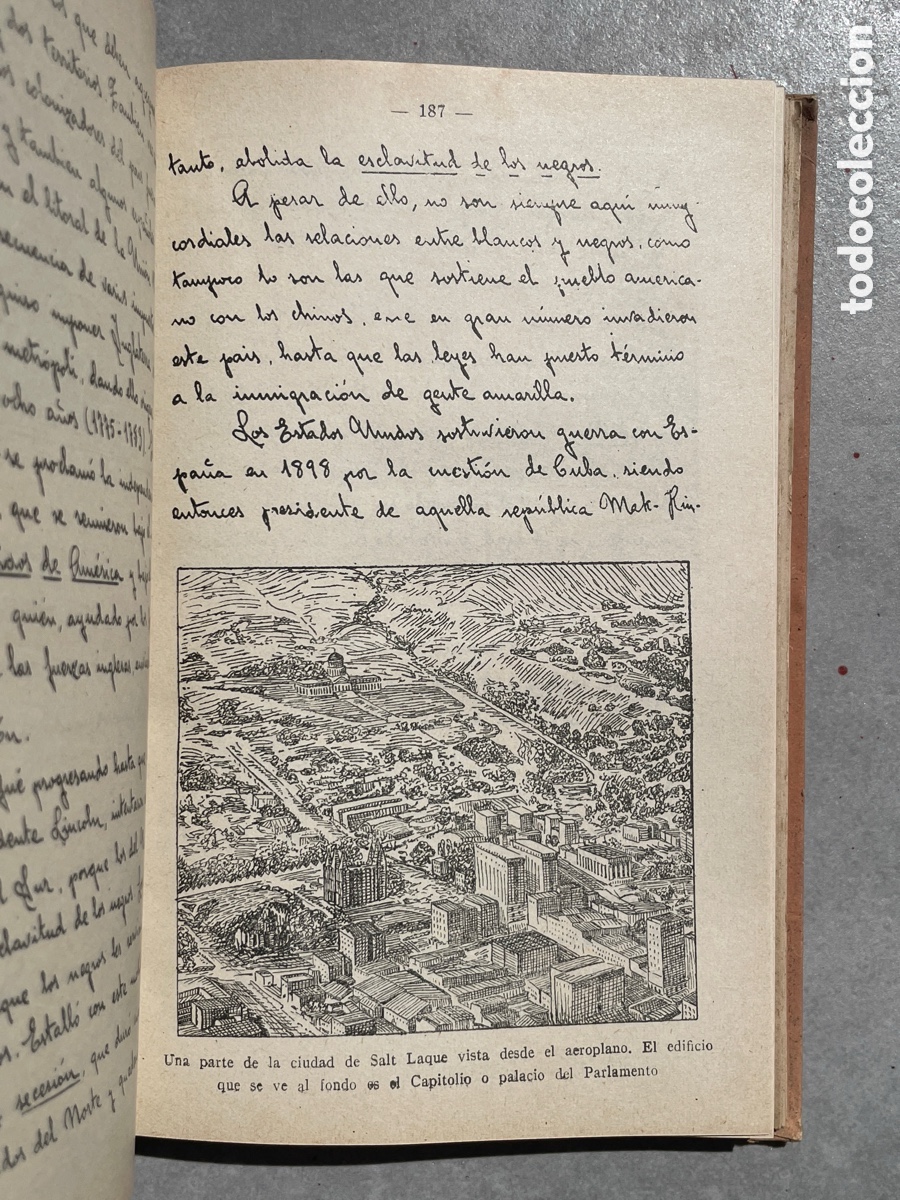 que deben
territorios. También
colonizadores del
y también algunos
en el litoral de la
quiso imponer Inglaterra
metrópoli, dando ello
ocho años (1775-1783)
se proclamó la
que se reunieron bajo
de América y
quién, ayudado por
las fuerzas inglesas
fué progresando hasta que
Lincoln,
Sur, porque los del
esclavitud de los negros
que los negros
Estalló con este
secesión, que duró
del Norte y
— 187 —
tanto, abolida la esclavitud de los negros.
A pesar de ello, no son siempre aquí muy
cordiales las relaciones entre blancos y negros, como
tampoco lo son las que sostiene el pueblo america-
no con los chinos, que en gran número invadieron
este país, hasta que las leyes han puesto término
a la inmigración de gente amarilla.
Los Estados Unidos sostuvieron guerra con Es-
paña en 1898 por la cuestión de Cuba, siendo
entonces presidente de aquella república Mak-Kin-
Una parte de la ciudad de Salt Laque vista desde el aeroplano. El edificio
que se ve al fondo es el Capitolio o palacio del Parlamento
todocoleccion